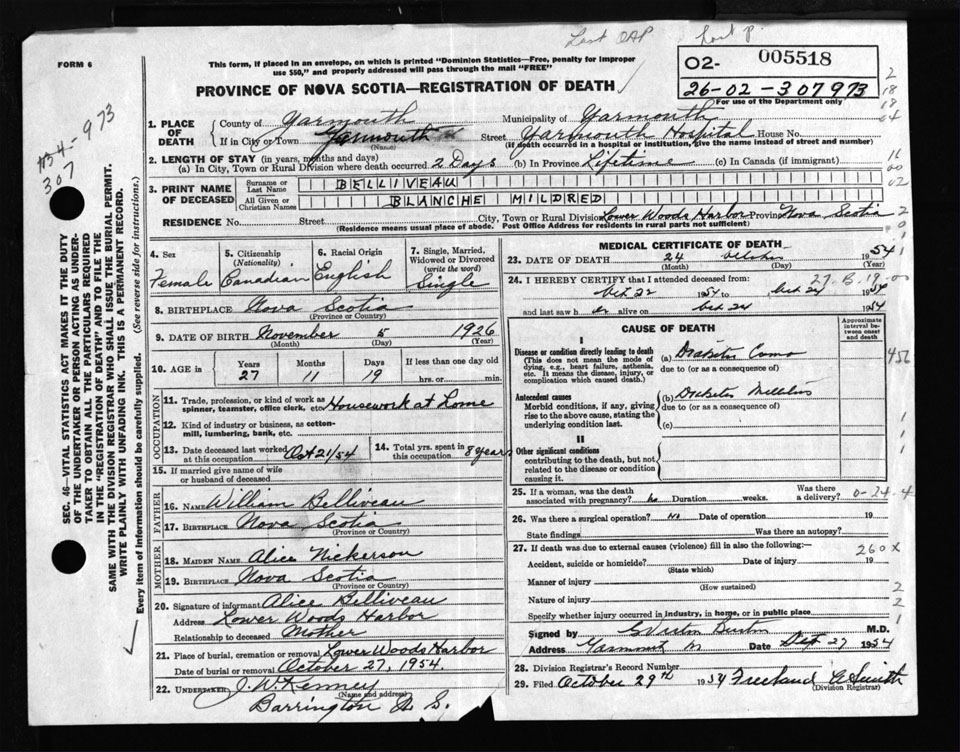 FORM 6
This form, if placed in an envelope, on which is printed "Dominion Statistics—Free, penalty for improper
use $50," and properly addressed will pass through the mail "FREE"
PROVINCE OF NOVA SCOTIA—REGISTRATION OF DEATH
O2- 005518
26-02-307973
For use of the Department only
1. PLACE OF DEATH County of Yarmouth Municipality of Yarmouth
If in City or Town Yarmouth (Name) Street Yarmouth Hospital House No.
(If death occurred in a hospital or institution, give the name instead of street and number)
2. LENGTH OF STAY (in years, months and days)
(a) In City, Town or Rural Division where death occurred 2 Days (b) In Province Lifetime (c) In Canada (if immigrant)
3. PRINT NAME OF DECEASED Surname or Last Name BELLIVEAU
All Given or Christian Names BLANCHE MILDRED
RESIDENCE No. Street City, Town or Rural Division Lower Woods Harbor Province Nova Scotia
(Residence means usual place of abode. Post Office Address for residents in rural parts not sufficient)
4. Sex Female
5. Citizenship (Nationality) Canadian
6. Racial Origin English
7. Single, Married, Widowed or Divorced (write the word) Single
8. BIRTHPLACE Nova Scotia
(Province or Country)
9. DATE OF BIRTH November 5 1926
(Month) (Day) (Year)
10. AGE in Years 27 Months 11 Days 19 If less than one day old
hrs. or min.
OCCUPATION
11. Trade, profession, or kind of work as
spinner, teamster, office clerk, etc. Housework at Home
12. Kind of industry or business, as cotton-
mill, lumbering, bank, etc.
13. Date deceased last worked at this occupation Oct 21/54
14. Total yrs. spent in this occupation 8 years
15. If married give name of wife
or husband of deceased
FATHER
16. NAME William Belliveau
17. BIRTHPLACE Nova Scotia
(Province or Country)
MOTHER
18. MAIDEN NAME Alice Nickerson
19. BIRTHPLACE Nova Scotia
(Province or Country)
20. Signature of informant Alice Belliveau
Address Lower Woods Harbor
Relationship to deceased Mother
21. Place of burial, cremation or removal Lower Woods Harbor
Date of burial or removal October 27, 1954.
22. UNDERTAKER J. W. Kenney
(Name and address)
Barrington N. S.
MEDICAL CERTIFICATE OF DEATH
23. DATE OF DEATH 24 October 1954
(Month) (Day) (Year)
24. I HEREBY CERTIFY that I attended deceased from:
Oct 22 1954 to Oct 24 1954
and last saw her alive on Oct 24 1954
CAUSE OF DEATH
Approximate interval between onset and death
I
Disease or condition directly leading to death (a) Diabetes Coma
(This does not mean the mode of
dying, e.g., heart failure, asthenia,
etc. It means the disease, injury, or
complication which caused death.)
due to (or as a consequence of)
Antecedent causes (b) Diabetes Mellitus
Morbid conditions, if any, giving
rise to the above cause, stating the
underlying condition last.
due to (or as a consequence of)
(c)
II
Other significant conditions
contributing to the death, but not
related to the disease or condition
causing it.
25. If a woman, was the death
associated with pregnancy? no Duration weeks. Was there a delivery? 0-24-4
26. Was there a surgical operation? no Date of operation 19
State findings Was there an autopsy?
27. If death was due to external causes (violence) fill in also the following:— 260X
Accident, suicide or homicide? Date of injury 19
(State which)
Manner of injury
(How sustained)
Nature of injury
Specify whether injury occurred in industry, in home, or in public place
Signed by M.D.
Address Date 27 1954
28. Division Registrar's Record Number
29. Filed October 29th 1954 Freeland E Smith
(Division Registrar)
SEC. 46—VITAL STATISTICS ACT MAKES IT THE DUTY
OF THE UNDERTAKER OR PERSON ACTING AS UNDER-
TAKER TO OBTAIN ALL THE PARTICULARS REQUIRED
IN THE "REGISTRATION OF DEATH" AND TO FILE THE
SAME WITH THE DIVISION REGISTRAR WHO SHALL ISSUE THE BURIAL PERMIT.
WRITE PLAINLY WITH UNFADING INK. THIS IS A PERMANENT RECORD.
Every item of information should be carefully supplied. (See reverse side for instructions.)